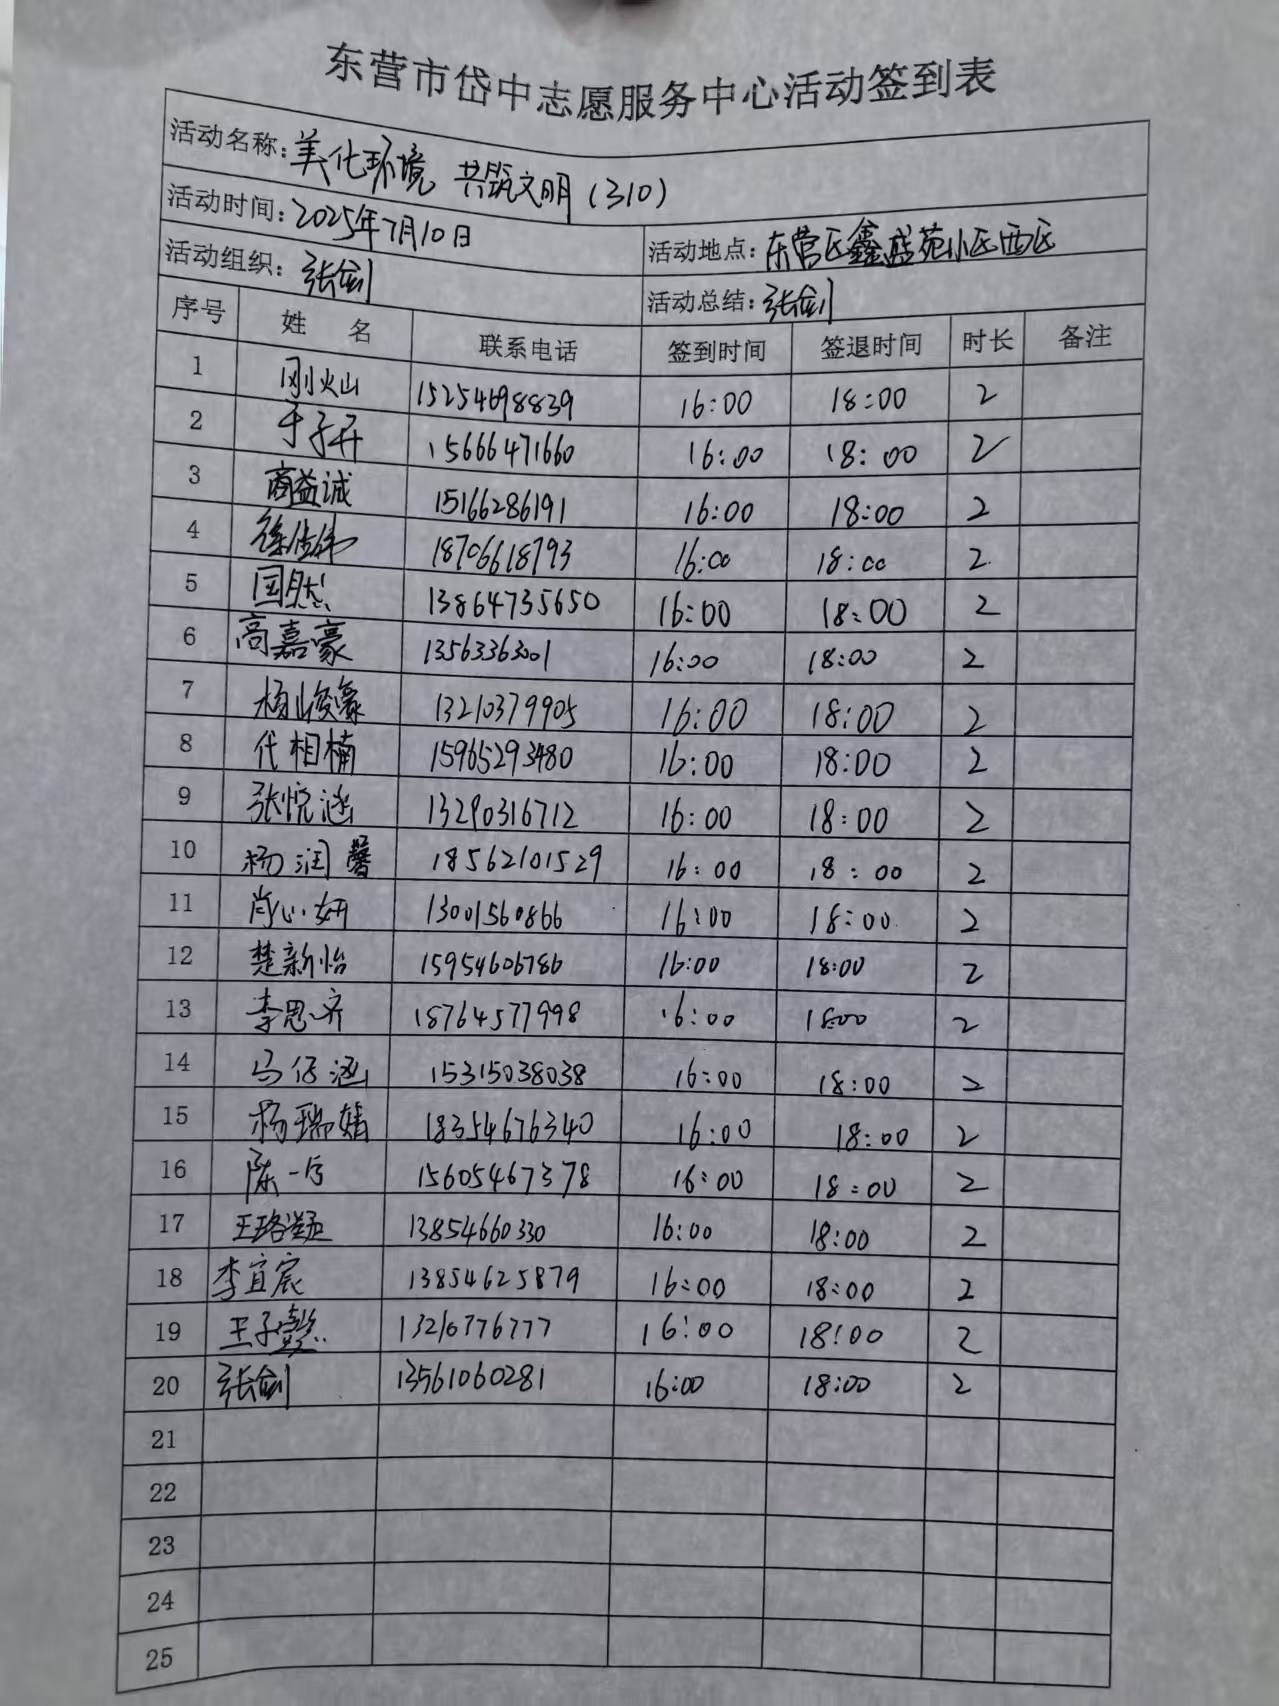 东营市岱中志愿服务中心活动签到表
活动名称:美化环境 共筑文明(310)
活动时间:2025年7月10日 活动地点:东营区鑫盛苑小区西区
活动组织:张剑 活动总结:张剑
序号 姓 名 联系电话 签到时间 签退时间 时长 备注
1 刚火山 15254698839 16:00 18:00 2
2 于子开 15666471660 16:00 18:00 2
3 商益诚 15166286191 16:00 18:00 2
4 18706618793 16:00 18:00 2
5 国然 13864735650 16:00 18:00 2
6 高嘉豪 13563363001 16:00 18:00 2
7 杨峻豪 13210379905 16:00 18:00 2
8 代相楠 15965293480 16:00 18:00 2
9 张悦涵 13290316712 16:00 18:00 2
10 杨润馨 18562101529 16:00 18:00 2
11 肖心妍 13001560866 16:00 18:00 2
12 楚新怡 15954606786 16:00 18:00 2
13 李思齐 18764577998 16:00 18:00 2
14 15315038038 16:00 18:00 2
15 杨瑞婧 18354676340 16:00 18:00 2
16 陈一 15605467378 16:00 18:00 2
17 王珞凝 13854660330 16:00 18:00 2
18 李宜宸 13854625879 16:00 18:00 2
19 王子懿 13210776777 16:00 18:00 2
20 张剑 13561060281 16:00 18:00 2
21
22
23
24
25